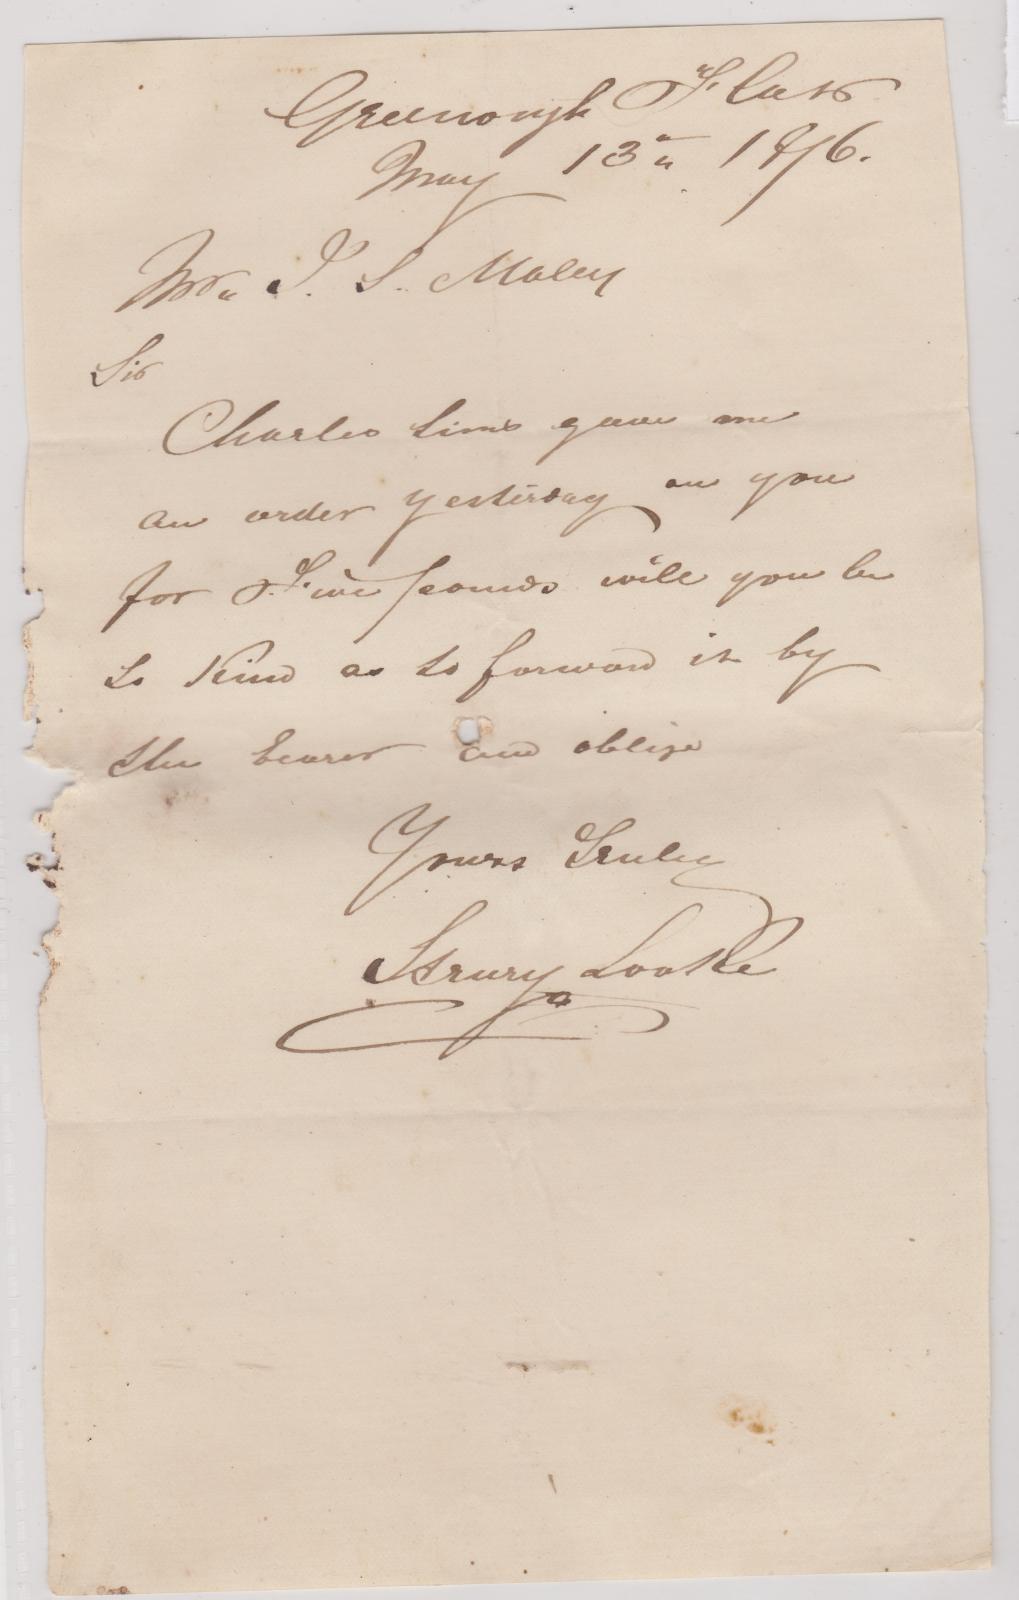 Greenough Flats
May 13th 1876.
Mr. J. S. Maley
Sir
Charles Sims gave me
an order yesterday on you
for Five pounds will you be
so kind as to forward it by
the bearer and oblige
Yours Truly
Henry Cooke